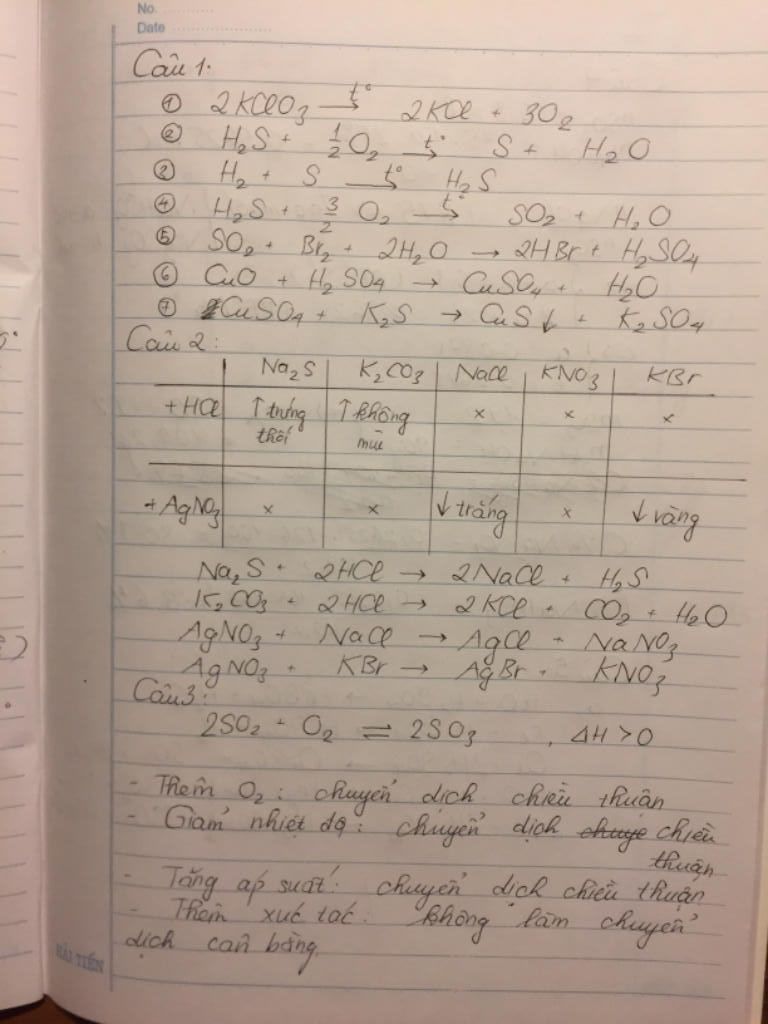 No. ............
Date ....................
Câu 1.
① 2KClO3 →t° 2KCl + 3O2
② H2S + 1/2 O2 →t° S + H2O
③ H2 + S →t° H2S
④ H2S + 3/2 O2 →t° SO2 + H2O
⑤ SO2 + Br2 + 2H2O → 2HBr + H2SO4
⑥ CuO + H2SO4 → CuSO4 + H2O
⑦ CuSO4 + K2S → CuS↓ + K2SO4
Câu 2:
Na2S K2CO3 NaCl KNO3 KBr
+HCl ↑ trứng thối ↑ không mùi x x x
+AgNO3 x x ↓ trắng x ↓ vàng
Na2S + 2HCl → 2NaCl + H2S
K2CO3 + 2HCl → 2KCl + CO2 + H2O
AgNO3 + NaCl → AgCl + NaNO3
AgNO3 + KBr → AgBr + KNO3
Câu 3:
2SO2 + O2 ⇌ 2SO3 , ΔH > 0
- Thêm O2 : chuyển dịch chiều thuận
- Giảm nhiệt độ : chuyển dịch chiều
thuận
- Tăng áp suất : chuyển dịch chiều thuận
- Thêm xúc tác : không làm chuyển
dịch cân bằng
HẢI TIẾN